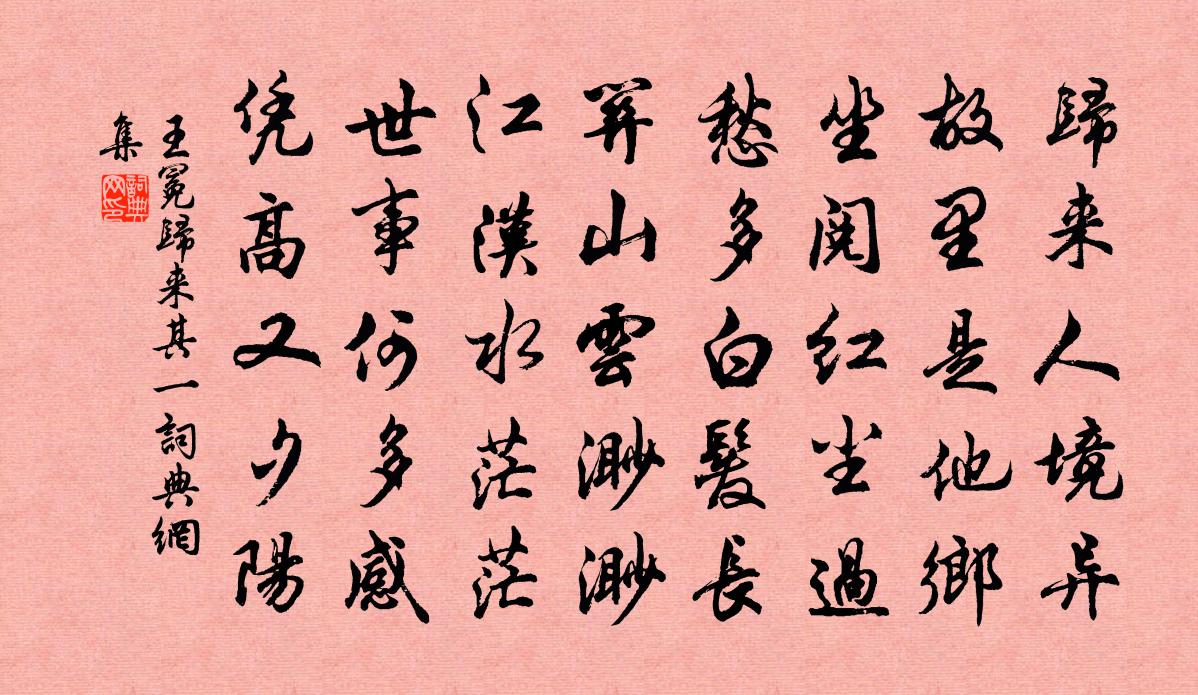 歸来人境异
故里是他鄉
坐閱红尘過
愁多白髮長
荆山雲渺渺
江漢水茫茫
世事何多感
凭高又夕陽
王冕歸来其一詞典網
集
詞典
网印